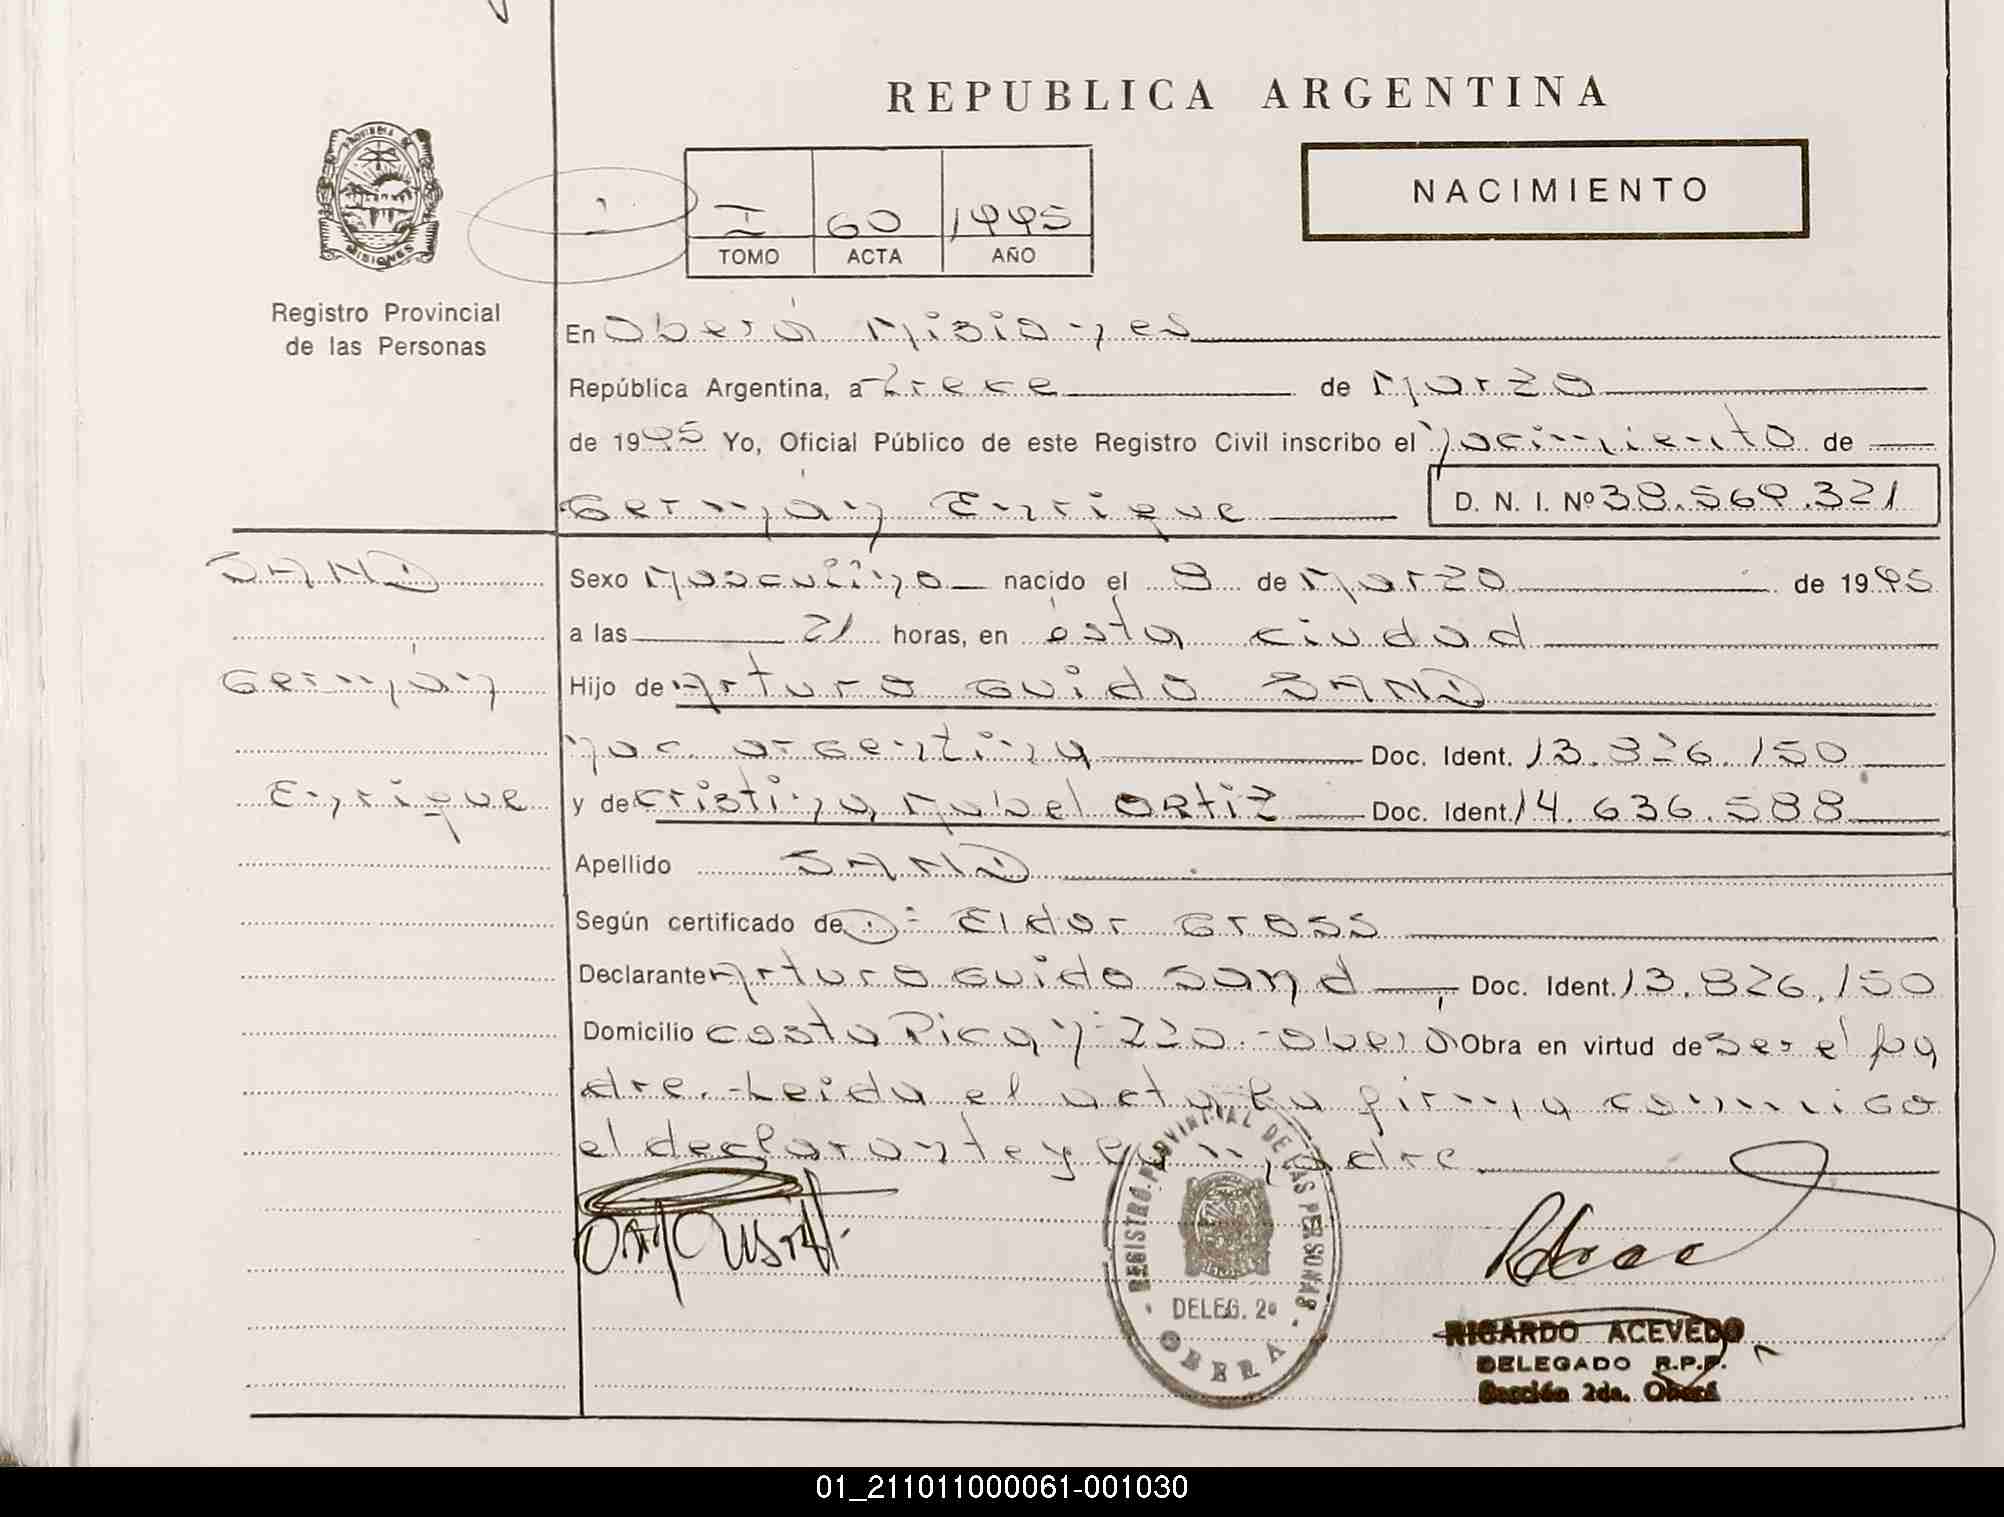 REPUBLICA ARGENTINA
PROVINCIA DE
MISIONES
Registro Provincial
de las Personas
I 60 1995
TOMO ACTA AÑO
NACIMIENTO
En Oberá Misiones
República Argentina, a trece de Marzo
de 1995 Yo, Oficial Público de este Registro Civil inscribo el nacimiento de
Germán Enrique D. N. I. Nº 38.569.321
SAND
Germán
Enrique
Sexo Masculino nacido el 8 de Marzo de 1995
a las 21 horas, en ésta ciudad
Hijo de Arturo Guido SAND
nac. argentina Doc. Ident. 13.826.150
y de Cristina Mabel ORTIZ Doc. Ident. 14.636.588
Apellido SAND
Según certificado de D: Eldor Gross
Declarante Arturo Guido Sand Doc. Ident. 13.826.150
Domicilio Costa Rica Nº 220.- Oberá Obra en virtud de ser el pa
dre.- Leida el acta la firma conmigo
el declarante y la madre
REGISTRO PROVINCIAL DE LAS PERSONAS
DELEG. 2ª
OBERA
RICARDO ACEVEDO
DELEGADO R.P.P.
Sección 2da. Oberá
01_211011000061-001030